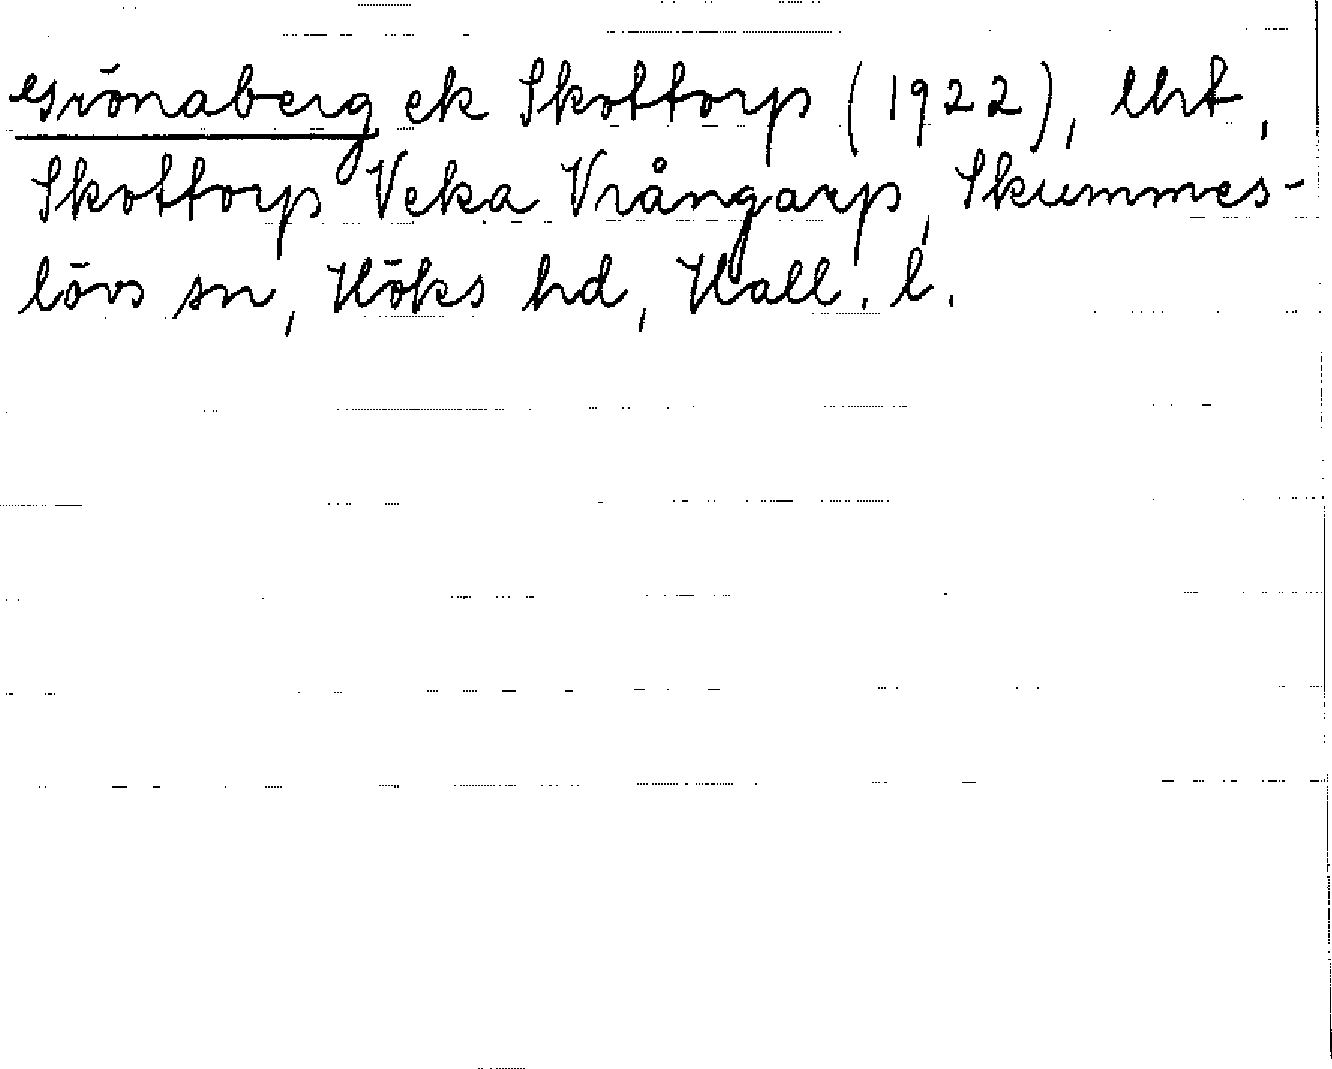 Grönaberg ek Skottorp (1922), lht,
Skottorp Veka Vrångarp, Skummes-
lövs sn, Höks hd, Hall. l.